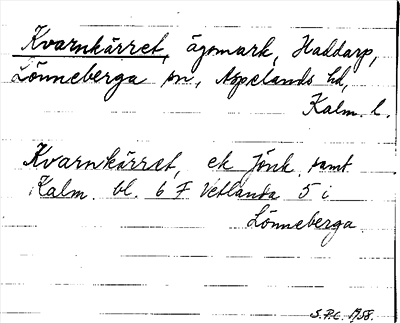 Kvarnkärret, ägomark, Haddarp,
Lönneberga sn, Aspelands hd,
Kalm. l.
Kvarnkärret, ek Jönk. samt
Kalm. bl. 6 F Vetlanda 5 i
Lönneberga
S.P.C. 1958.